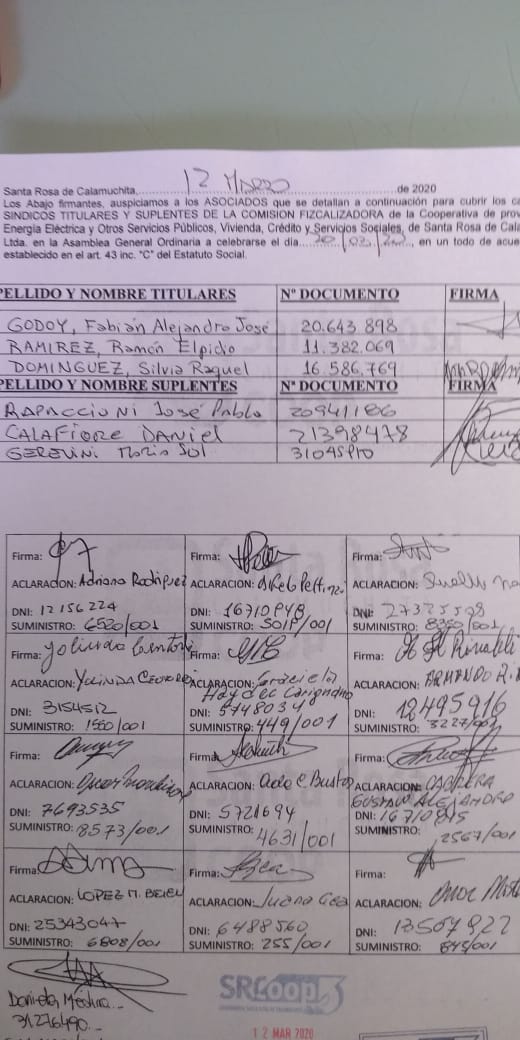 Santa Rosa de Calamuchita, 12 Marzo de 2020
Los Abajo firmantes, auspiciamos a los ASOCIADOS que se detallan a continuación para cubrir los ca
SINDICOS TITULARES Y SUPLENTES DE LA COMISION FIZCALIZADORA de la Cooperativa de prov
Energía Eléctrica y Otros Servicios Públicos, Vivienda, Crédito y Servicios Sociales, de Santa Rosa de Cala
Ltda. en la Asamblea General Ordinaria a celebrarse el día, en un todo de acue
establecido en el art. 43 inc. "C" del Estatuto Social.
PELLIDO Y NOMBRE TITULARES Nº DOCUMENTO FIRMA
GODOY, Fabián Alejandro José 20.643.898
RAMIREZ, Ramón Elpidio 11.382.069
DOMINGUEZ, Silvia Raquel 16.586.769
PELLIDO Y NOMBRE SUPLENTES Nº DOCUMENTO FIRMA
RAPACCIONI José Pablo 20941186
CALAFIORE DANIEL 21398478
GEREVINI María Sol
Firma: Firma: Firma:
ACLARACION: Adriana Rodriguez ACLARACION: ACLARACION:
DNI: 12156224 DNI: DNI:
SUMINISTRO: 6520/001 SUMINISTRO: SUMINISTRO: 8350/001
Firma: Firma: Firma:
ACLARACION: Yolinda ACLARACION: Graciela ACLARACION: ARMANDO
Haydee
DNI: 3154512 DNI: 5748034 DNI: 12495916
SUMINISTRO: 1560/001 SUMINISTRO: 449/001 SUMINISTRO: 3227/001
Firma: Firma: Firma:
ACLARACION: Oscar ACLARACION: Busto ACLARACION: CABRERA
GUSTAVO ALEJANDRO
DNI: 7693535 DNI: 5721694 DNI: 16710815
SUMINISTRO: 8573/001 SUMINISTRO: 4631/001 SUMINISTRO: 2567/001
Firma: Firma: Firma:
ACLARACION: LOPEZ M. BELEN ACLARACION: Juana ACLARACION: Omar
DNI: 25343047 DNI: 6488560 DNI:
SUMINISTRO: 6808/001 SUMINISTRO: 255/001 SUMINISTRO: 845/001
Daniela Medina
31276490
SRCoop
12 MAR 2020